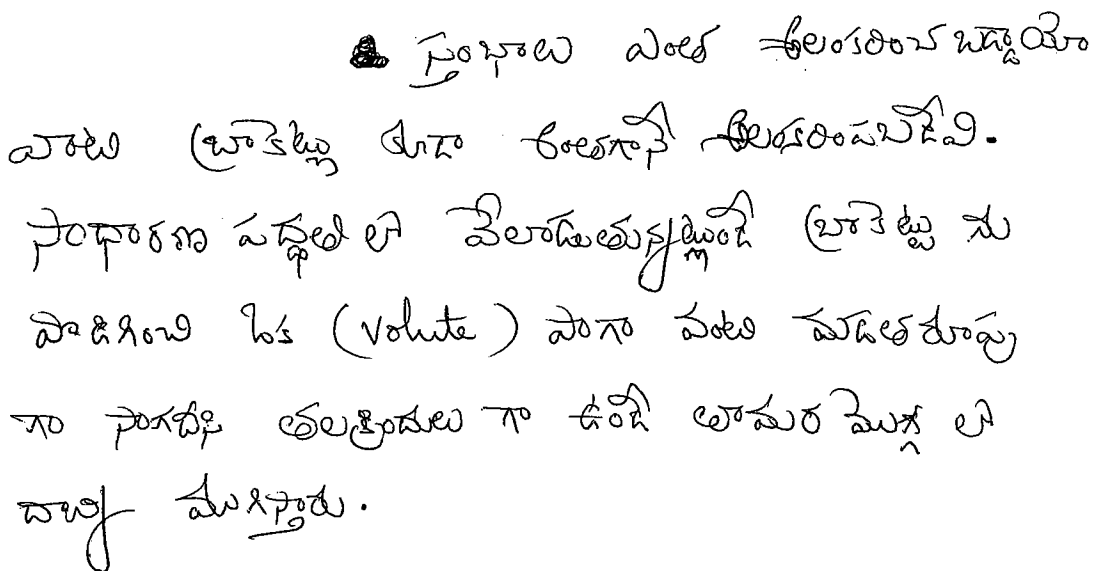 స్తంభాలు ఎంత అలంకరించబడ్డాయో
వాటి బ్రాకెట్లు కూడా అంతగానే అలంకరింపబడేవి.
సాధారణ పద్ధతి లో వేలాడుతున్నట్లుండే బ్రాకెట్టు ను
పొడిగించి ఒక (Volute) పాగా వంటి మడతరూపు
గా సాగదీసి తలక్రిందులు గా ఉండే తామర మొగ్గ లో
దాన్ని ముగిస్తారు.